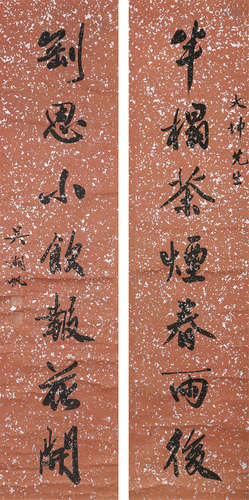 大坤先生
半榻茶煙春雨後
劉思小飲報花開
吳湖帆